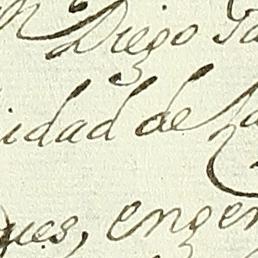 Diego
idad de
ues, engen